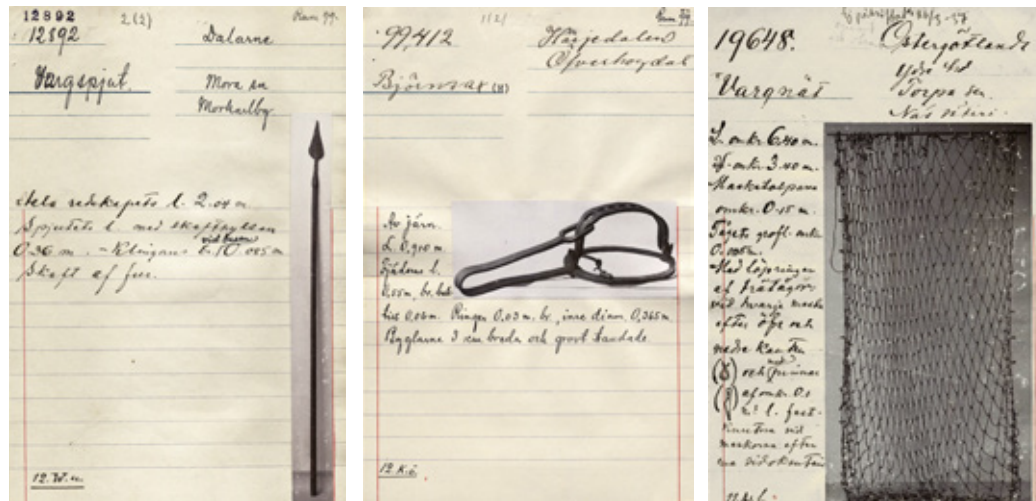 12892
2(2)
Rum 99.
12892
Dalarne
Vargspjut.
Mora sn
Morkarlby
Hela redskapets l. 2.04 m.
Spjutets l. med skafthylsan
vid basen
0.36 m. - Klingans br. 0.085 m
Skaft af fur.
12.W.u.
1(2)
Rum 99
99,412
Härjedalen
Öfverhogdal
Björnsax (H)
Av järn.
L. 0,900 m.
Fjäderns l.
0,55 m, br. bak-
till 0,06 m. Ringen 0.03 m. br., inre diam. 0,365 m.
Byglarne 3 cm breda och grovt tandade.
12.K.c.
19648.
Östergötland
Ydre hd
Vargnät
Torpa sn.
Näs säteri.
L. omkr 6.40 m.
omkr. 3.40 m.
omkr. 0.15 m.
Tågets grofl. omkr.
0.005 m.
Med löpringar
af trätågor
vid hvarje maska
efter öfre och
nedre kanten
och
af omkr. 0.1
m. l. fast-
vid
maskorna efter